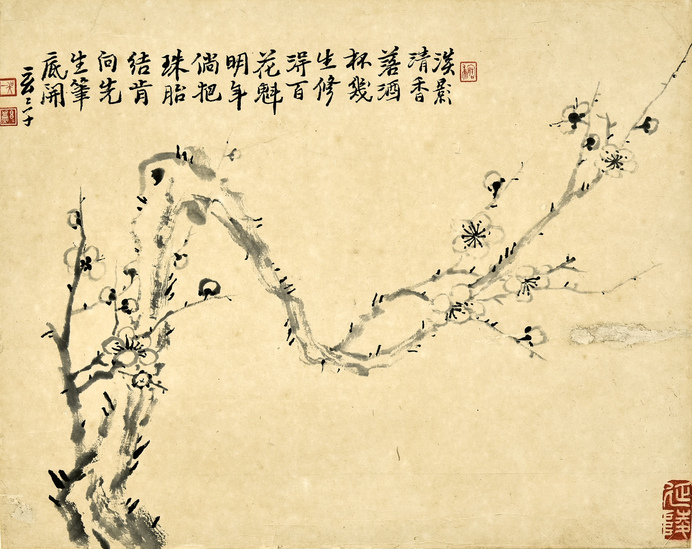 淡影
清香
落酒
杯幾
生修
得百
花魁
明年
倘把
珠胎
結肯
向先
生筆
底開
延陵